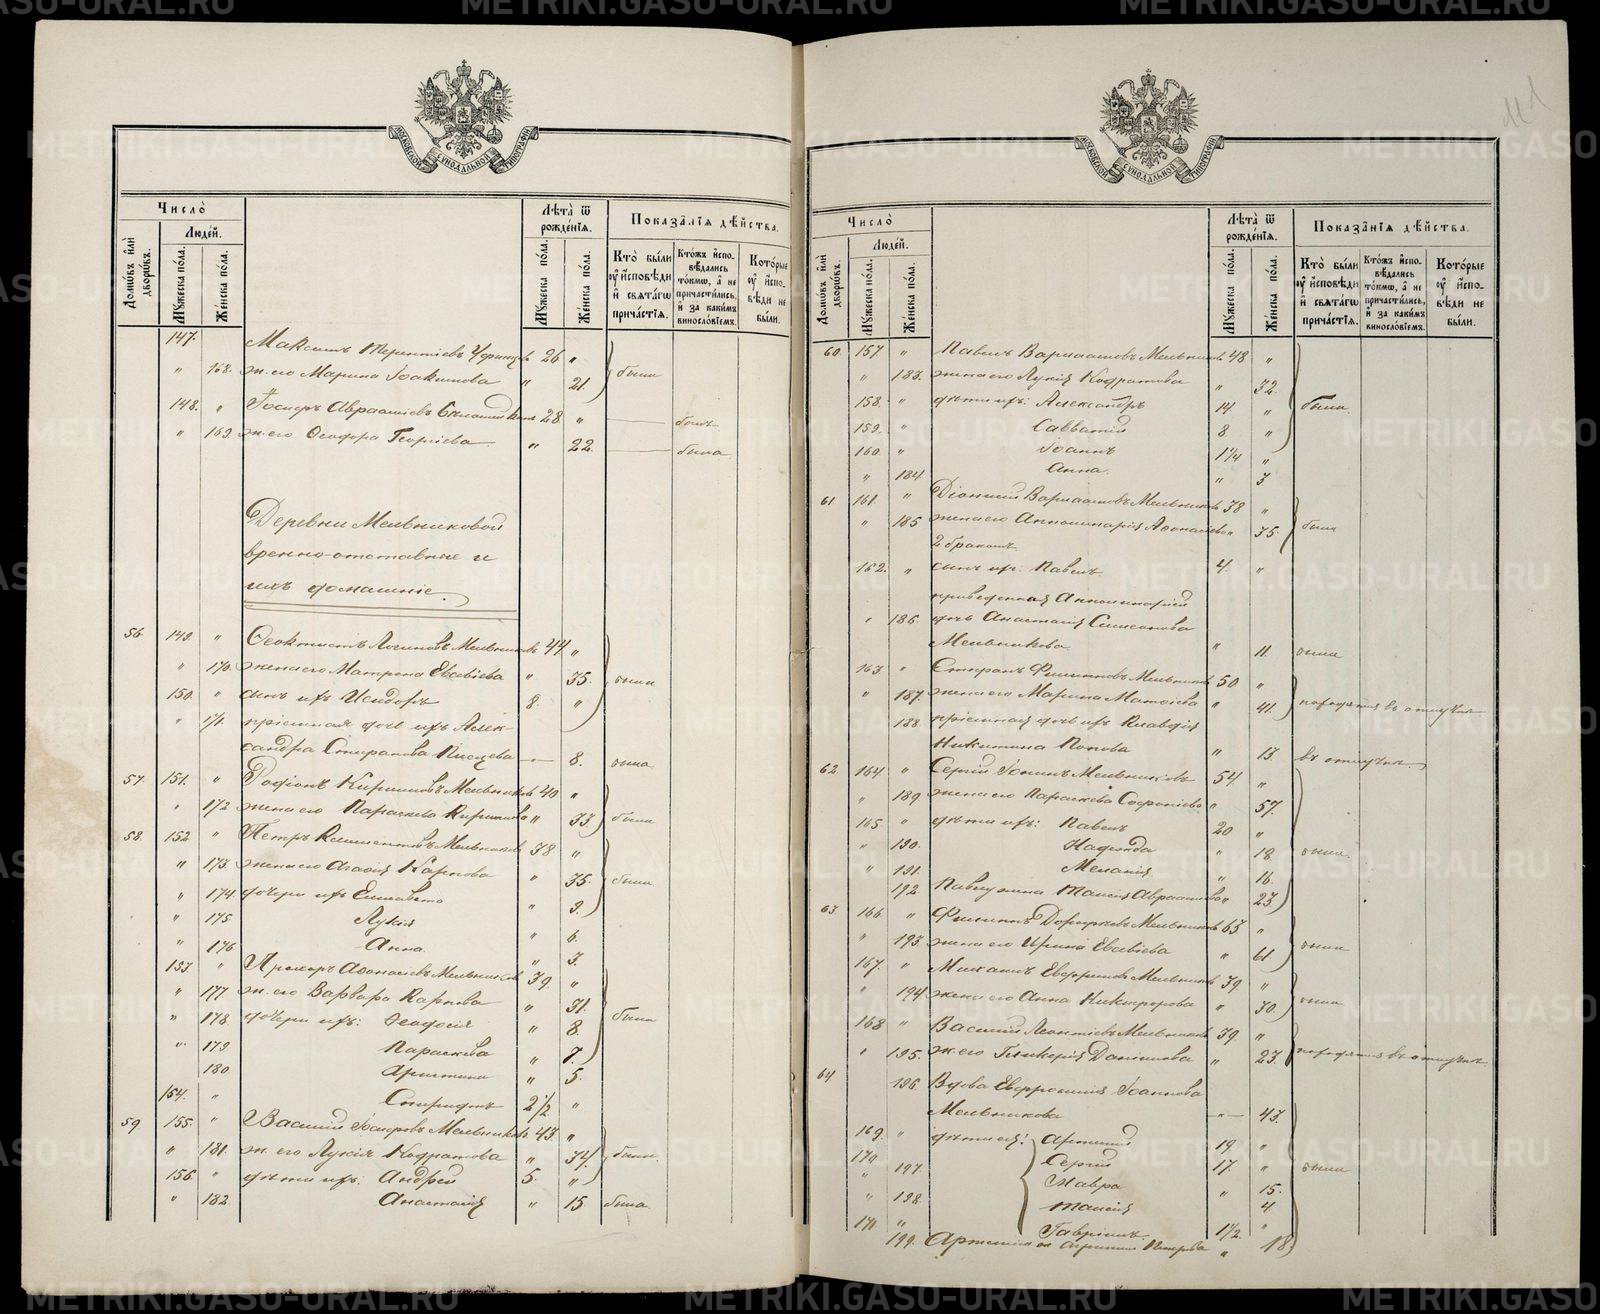 МОСКОВСКОЙ СѴНОДАЛЬНОЙ ТИПОГРАФІИ
Число̀
Людей.
Домѡвъ и҆лѝ дворѡвъ.
Мꙋжеска пола.
Женска пола.
Лѣта̀ ѿ рожденїѧ.
Мꙋжеска пола.
Женска пола.
Показанїѧ дѣйства.
Кто̀ были ᲂу҆ и҆сповѣди и҆ свѧтагѡ причастїѧ.
Ктожъ и҆споведались токмѡ, а҆ не причастились, и҆ за какимъ винословїемъ.
Которые ᲂу҆ и҆споведи не были.
147. Максимъ Терентіевъ 26 "
" 168. ж. его Марина Іоакимова " 21. были
148. " Авраамовъ 28 " былъ
" 169. ж. его Ѳеодора Георгіева " 22. была
Деревни Мельниковой
военно-отставные и
ихъ домашніе.
56. 149. " Ѳеоктистъ Логиновъ Мельниковъ 44 "
" 170. жена его Матрона Евсевіева " 35. были
150. " сынъ ихъ Исидоръ 8. "
" 171. пріемная дочь ихъ Алек-
сандра Стефанова " 8. была
57. 151. " Родіонъ Кирилловъ Мельниковъ 40 "
" 172. жена его Параскева " 33. были
58. 152 " Петръ Климентовъ Мельниковъ 38 "
" 173. жена его Агафія Карпова " 35. были
" 174. дочери ихъ Елисавета " 9.
" 175 Лукія " 6.
" 176 Анна " 3.
153 " Прохоръ Аѳанасіевъ Мельниковъ 39. "
" 177 ж. его Варвара Карпова " 31. были
" 178. дочери ихъ: Ѳеодосія " 8.
" 179 Параскева " 7.
180. " 5.
154. " Спиридонъ 2½ "
59 155. " Василій Мельниковъ 43. "
" 181. ж. его Лукія Кодратова " 34. были.
156. " дѣти ихъ: Андрей 5. "
" 182. Анастасія " 15 была.
МОСКОВСКОЙ СѴНОДАЛЬНОЙ ТИПОГРАФІИ
Число̀
Людей.
Домѡвъ и҆лѝ дворѡвъ.
Мꙋжеска пола.
Женска пола.
Лѣта̀ ѿ рожденїѧ.
Мꙋжеска пола.
Женска пола.
Показанїѧ дѣйства.
Кто̀ были ᲂу҆ и҆сповѣди и҆ свѧтагѡ причастїѧ.
Ктожъ и҆споведались токмѡ, а҆ не причастились, и҆ за какимъ винословїемъ.
Которые ᲂу҆ и҆споведи не были.
60. 157. " Павелъ Варлаамовъ Мельниковъ 48. "
" 183. жена его Лукія Кодратова " 32.
158. " дѣти ихъ: Александръ 14 " были.
159. " Савватій 8 "
160. " Іоаннъ 1¼ "
" 184. Анна. " 3
61 161. " Діонисій Варлаамовъ Мельниковъ 38 "
" 185 жена его Аполлинарія Аѳанасіева " 35. были
2 бракомъ
162. " сынъ ихъ: Павелъ 4. "
приведенная Аполлинаріей
" 186 дочь Анастасія Симеонова
Мельникова. " 11. была
163. " Стефанъ Филипповъ Мельниковъ 50. "
" 187. жена его Марина Матѳіева " 41. находятся въ отлучкѣ
188. пріемная дочь ихъ Клавдія
Никитина Попова " 13. въ отлучкѣ.
62 164 " Сергій Іонинъ Мельниковъ 54 "
" 189. жена его Параскева Софоніева " 57.
165 " дѣти ихъ: Павелъ 20 "
" 190. Надежда " 18. были.
" 191. Меланія " 16.
192. Павлу жена Таисія Авраамова " 23
63. 166 " Филиппъ Мельниковъ 63 "
" 193. жена его Ирина Евсевіева " 61 были
167. " Михаилъ Евфремовъ Мельниковъ 39 "
" 194 жена его Анна Никифорова " 30. были
168 " Василій Леонтіевъ Мельниковъ 39 "
" 195. ж. его Гликерія Даніилова " 23. находятся въ отлучкѣ
64 196. Вдова Евфросинія Іоаннова
Мельникова " 43.
169. " дѣти ея: 19 "
170 Сергій 17. "
" 197. Мавра " 15.
" 198. Таисія " 4 были
171 " Гавріилъ 1½. "
199. Петрова " 18
METRIKI.GASO-URAL.RU